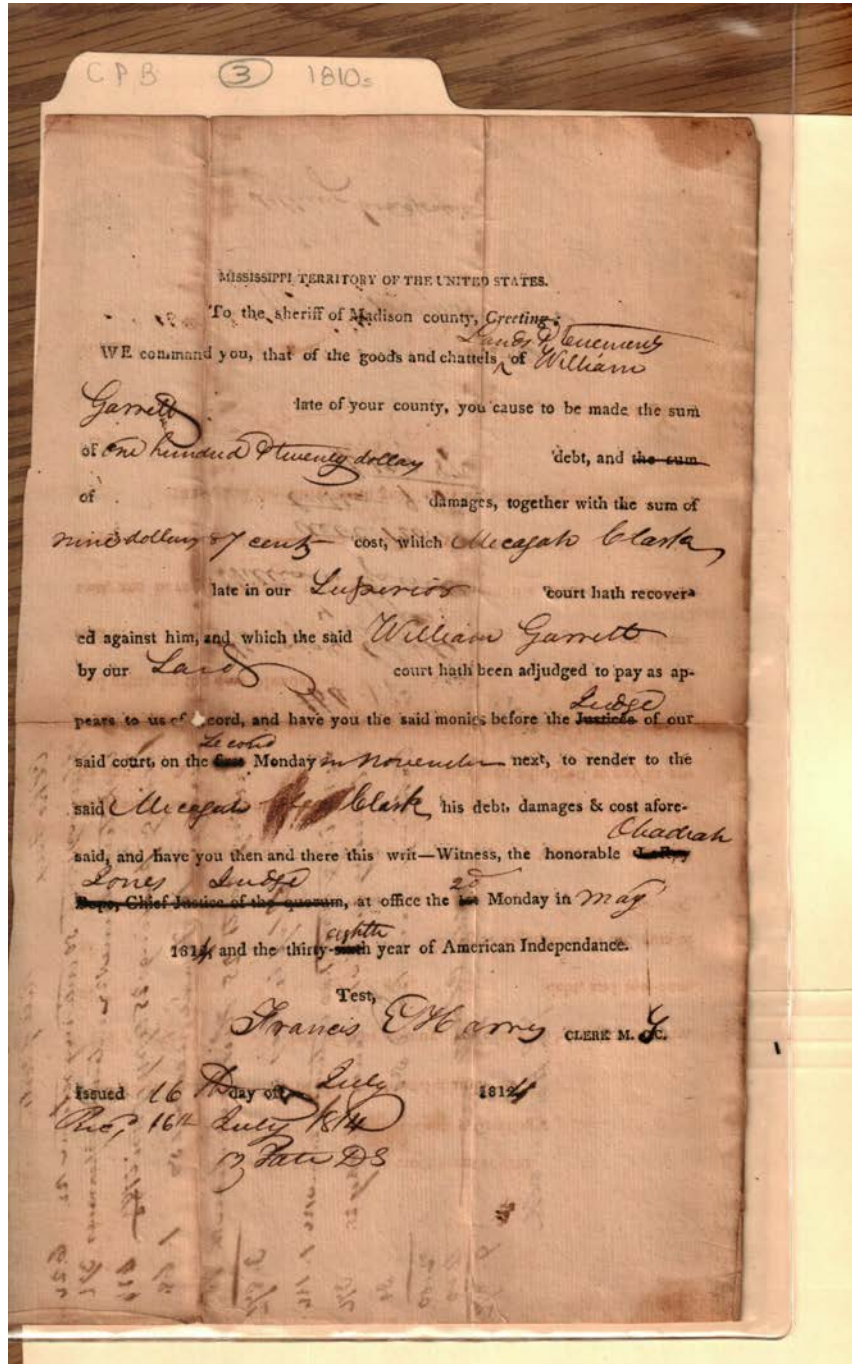 CPB ③ 1810s
MISSISSIPPI TERRITORY OF THE UNITED STATES.
To the sheriff of Madison county, Greeting:
Lands & tenements
WE command you, that of the goods and chattels ^ of William
Garrett late of your county, you cause to be made the sum
of one hundred & twenty dollars debt, and the sum
of damages, together with the sum of
nine dollars & 7 cents cost, which Mecagah Clark
late in our Superior court hath recover-
ed against him, and which the said William Garrett
by our said court hath been adjudged to pay as ap-
Judge
pears to us of cord, and have you the said monies before the Justices of our
Second
said court, on the Monday in November next, to render to the
said Mecagah Clark his debt, damages & cost afore-
Obadiah
said, and have you then and there this writ—Witness, the honorable
Jones Judge 2d
Chief Justice of the quorum, at office the 1st Monday in May
eighth
1814, and the thirty-sixth year of American Independance.
Test,
Francis E Harris CLERK M. C.
Issued 16th day of July 1814
16th July 1814
DS